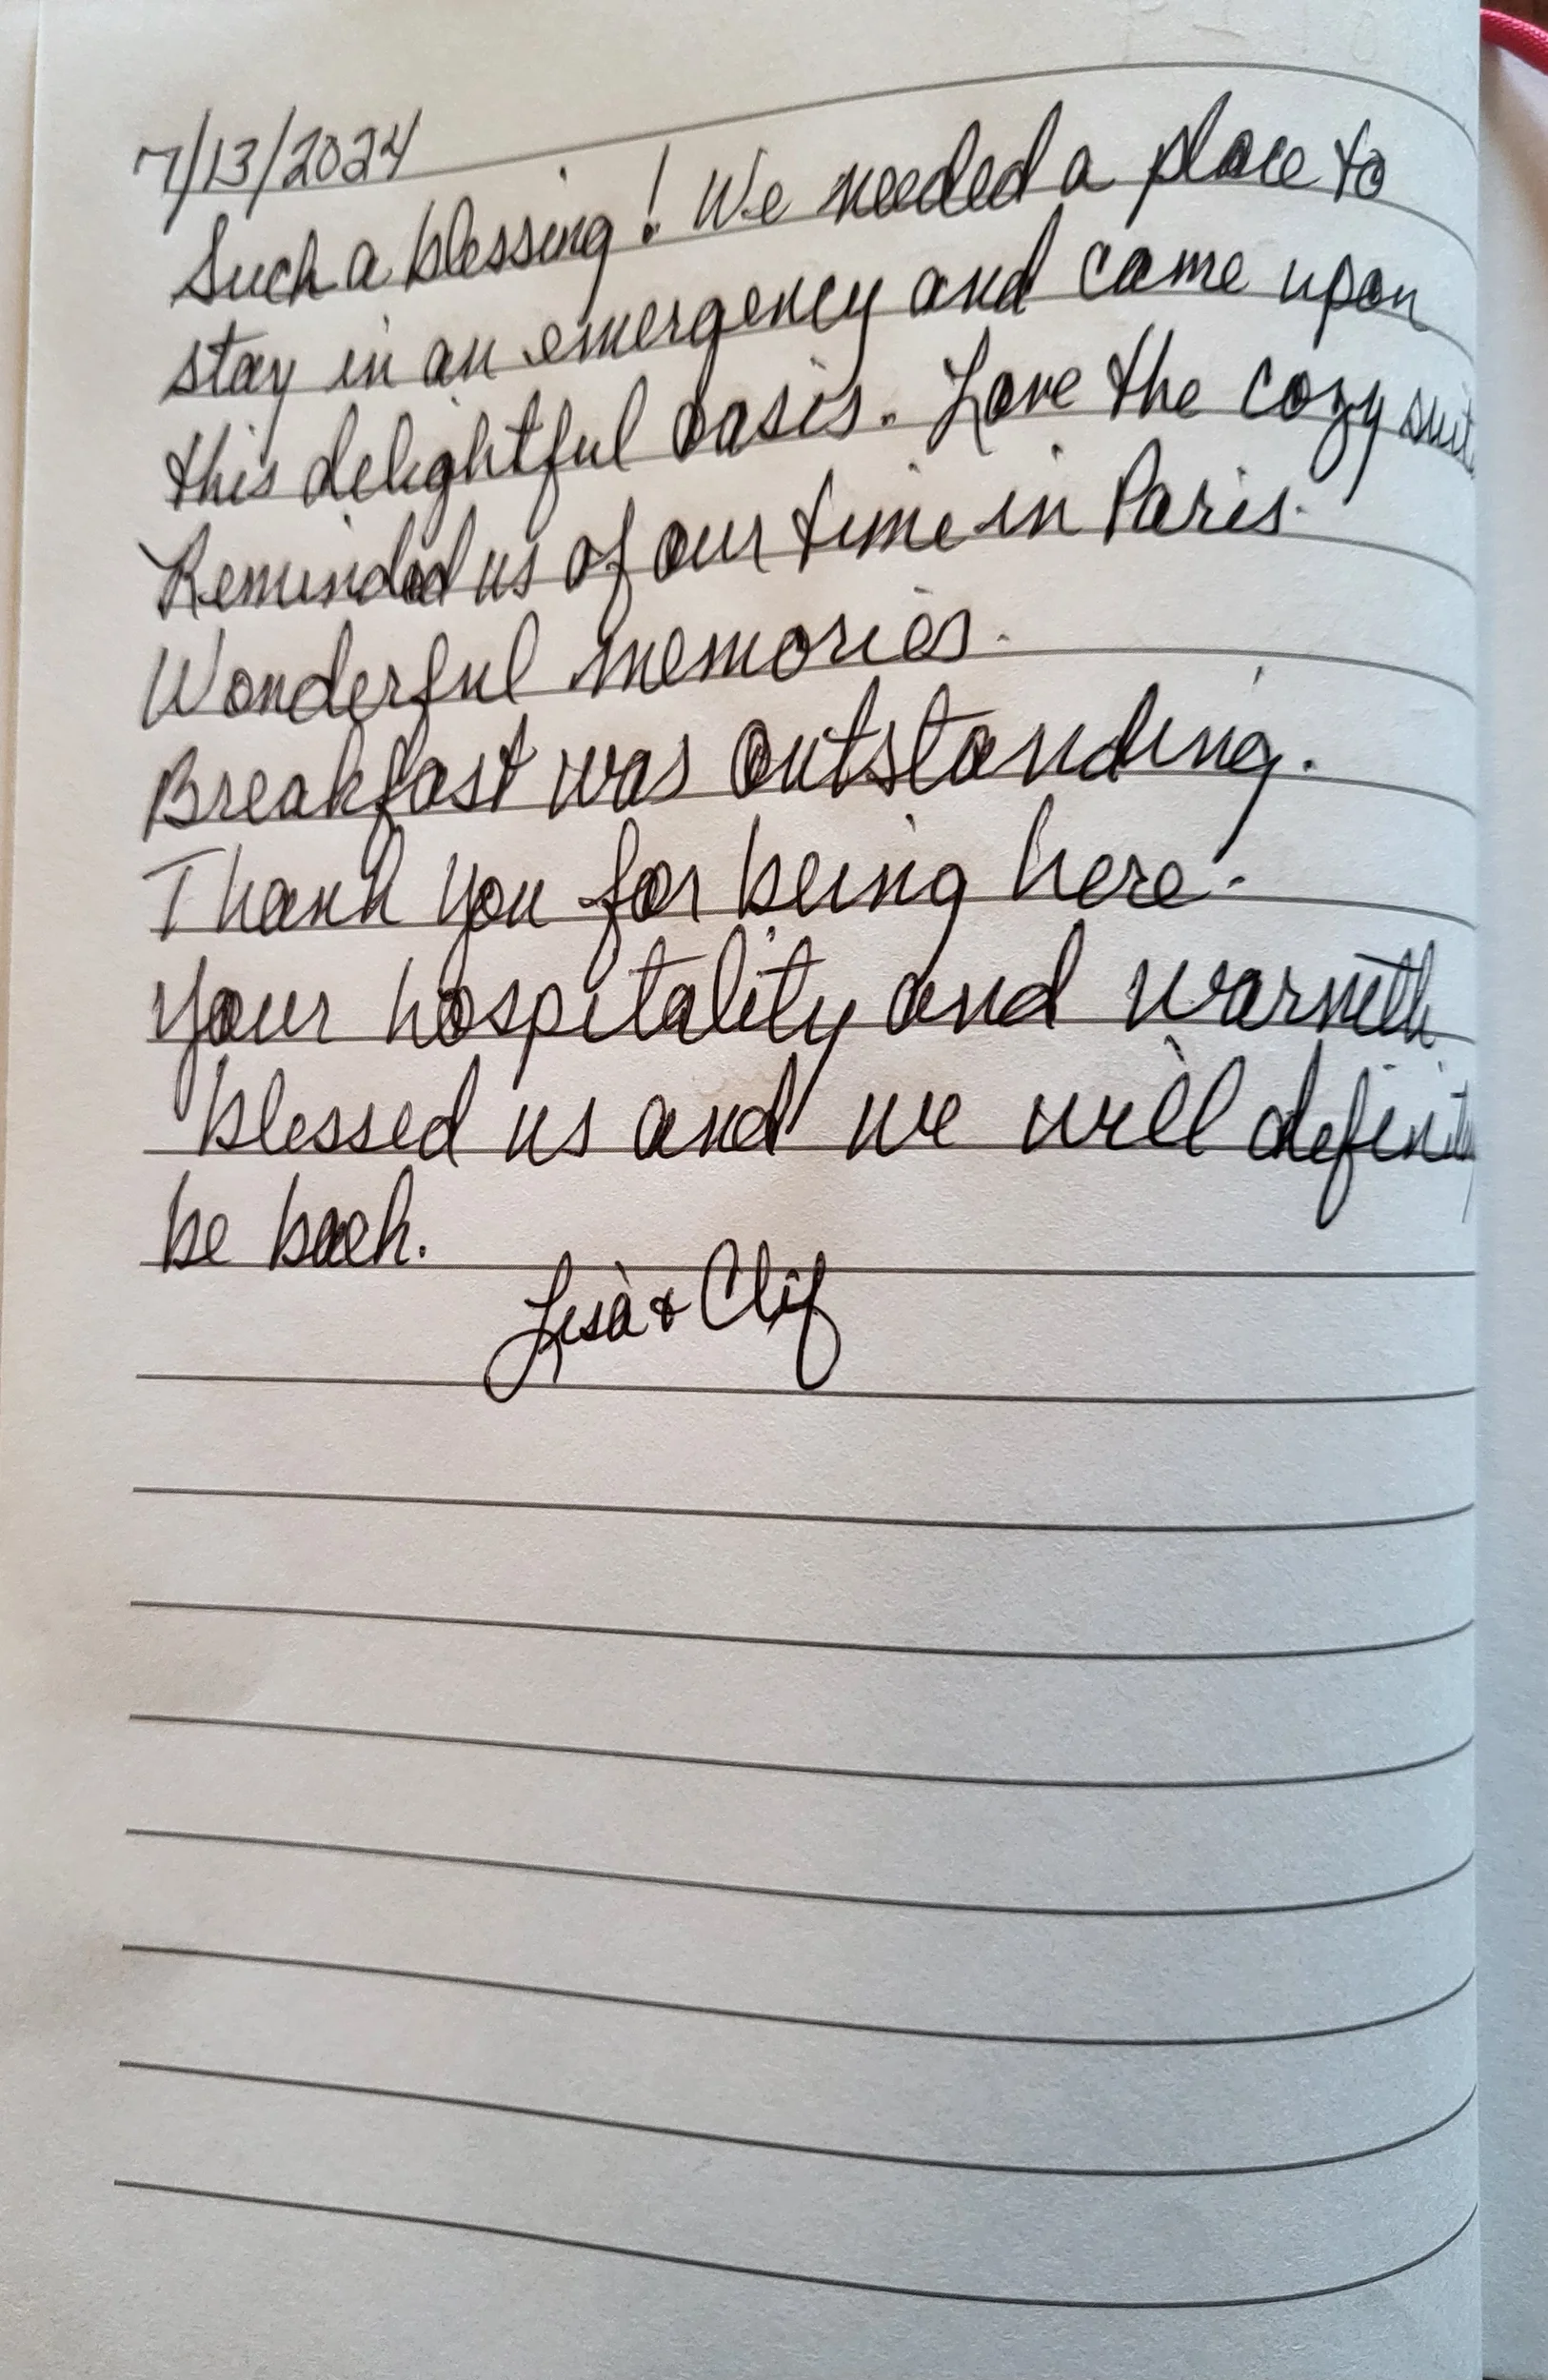 7/13/2024
Such a blessing! We needed a place to
stay in an emergency and came upon
this delightful oasis. Love the cozy suit
Reminded us of our time in Paris.
Wonderful memories.
Breakfast was outstanding.
Thank you for being here.
Your hospitality and warmth
blessed us and we will definit
be back.
Lisa & Clif